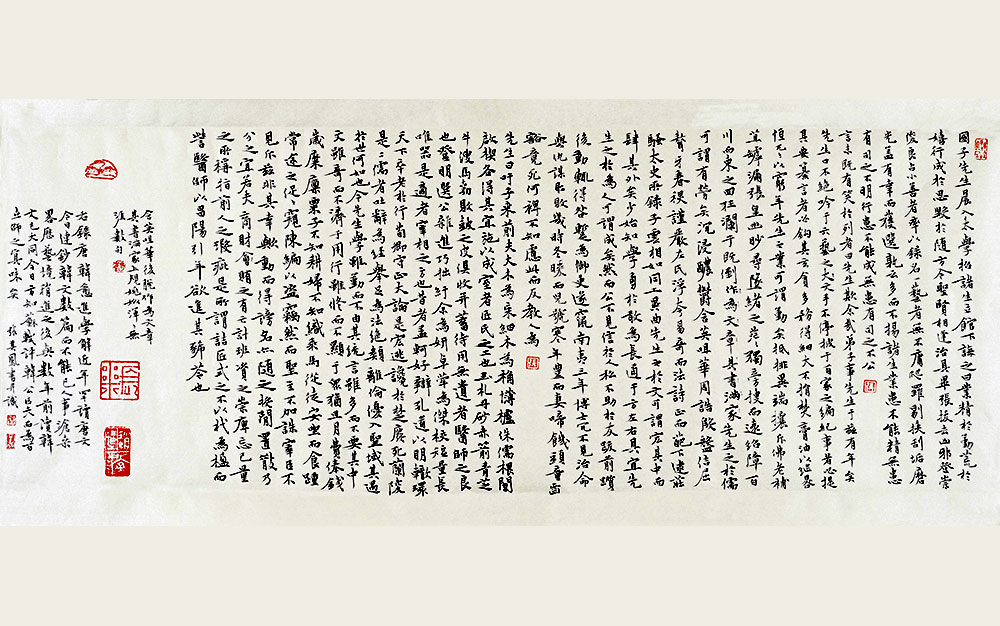 國子先生晨入太學招諸生立館下誨之曰業精於勤荒於
嬉行成於思毀於隨方今聖賢相逢治具畢張拔去凶邪登崇
俊良占小善者率以錄名一藝者無不庸爬羅剔抉刮垢磨
光蓋有幸而獲選孰云多而不揚諸生業患不能精無患
有司之不明行患不能成無患有司之不公
言未既有笑於列者曰先生欺余哉弟子事先生于茲有年矣
先生口不絕吟于六藝之文手不停披于百家之編紀事者必提
其要纂言者必鉤其玄貪多務得細大不捐焚膏油以繼晷
恆兀兀以窮年先生之業可謂勤矣抵排異端攘斥佛老補
苴罅漏張皇幽眇尋墜緒之茫茫獨旁搜而遠紹障百
川而東之回狂瀾于既倒作為文章其書滿家先生之於儒
可謂有勞矣沉浸醲鬱含英咀華周誥殷盤佶屈
聱牙春秋謹嚴左氏浮夸易奇而法詩正而葩下逮莊
騷太史所錄子雲相如同工異曲先生之於文可謂宏其中而
肆其外矣少始知學勇於敢為長通于方左右具宜先
生之於為人可謂成矣然而公不見信於人私不助於友跋前躓
後動輒得咎暫為御史遂竄南夷三年博士冗不見治命
與仇謀取敗幾時冬暖而兒號寒年豐而妻啼饑頭童齒
豁竟死何裨不知慮此而反教人為
先生曰吁子來前夫大木為杗細木為桷欂櫨侏儒椳闑
扂楔各得其宜施以成室者匠氏之工也玉札丹砂赤箭青芝
牛溲馬勃敗鼓之皮俱收并蓄待用無遺者醫師之良
也登明選公雜進巧拙紆余為妍卓犖為傑校短量長
唯器是適者宰相之方也昔者孟軻好辯孔道以明轍環
天下卒老于行荀卿守正大論是宏逃讒於楚廢死蘭陵
是二儒者吐辭為經舉足為法絕類離倫優入聖域其遇
於世何如也今先生學雖勤而不由其統言雖多而不要其中
文雖奇而不濟于用行雖修而不顯于眾猶且月費俸錢
歲糜廩粟子不知耕婦不知織乘馬從徒安坐而食踵
常途之促促窺陳編以盜竊然而聖主不加誅宰臣不
見斥茲非其幸歟動而得謗名亦隨之投閑置散乃
分之宜若夫商財賄之有亡計班資之崇庳忘己量
之所稱指前人之瑕疵是所謂詰匠氏之不以杙為楹而
訾醫師以昌陽引年欲進其豨苓也
含英咀華後脫作為文章
其書滿家上規姚姒渾渾無
涯數句
右錄唐韓愈進學解近年罕讀唐文
今日連鈔韓文數篇而不能已人事滄桑
文已大同今日方知蘇軾評韓公
立師之真味矣